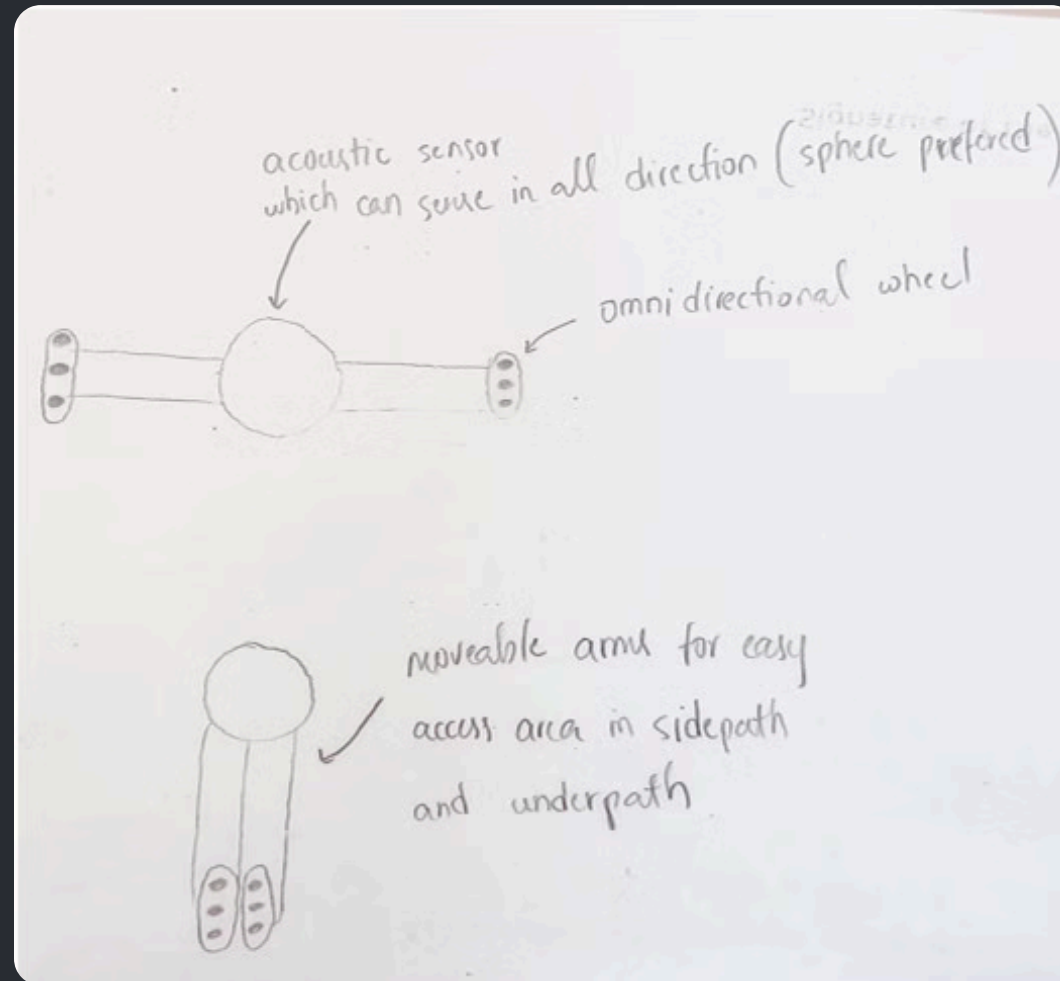 acoustic sensor
which can sense in all direction (sphere prefered)
omnidirectional wheel
moveable arms for easy
access area in sidepath
and underpath